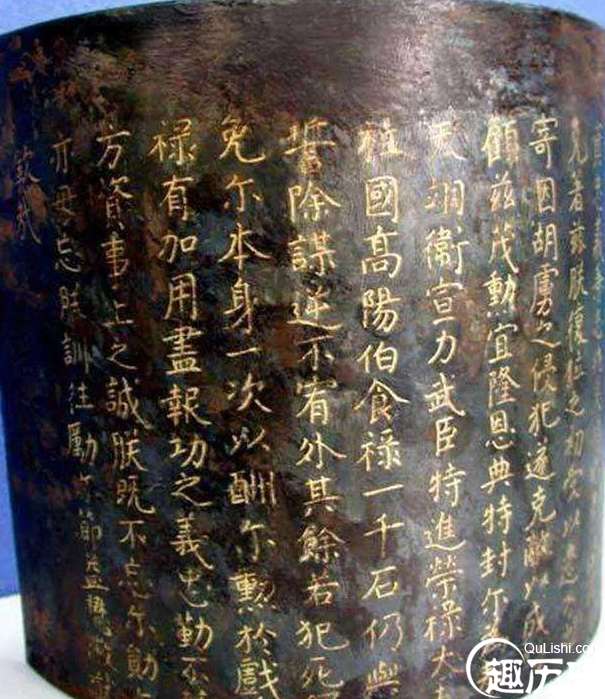 克著兹朕復位之初
寄因胡虜之侵犯遂克敵以成
顧兹茂勳宜隆恩典特封尔為
天翊衛宣力武臣特進榮禄大
柱國高陽伯食禄一千石仍與
誓除謀逆不宥外其餘若犯死
免尔本身一次以酬尔勳於戲
禄有加用盡報功之義忠勤不
方資事上之誠朕既不忘尔勳
亦毋忘朕訓往勵尔節益懋
欽哉
QuLishi.com
趣历